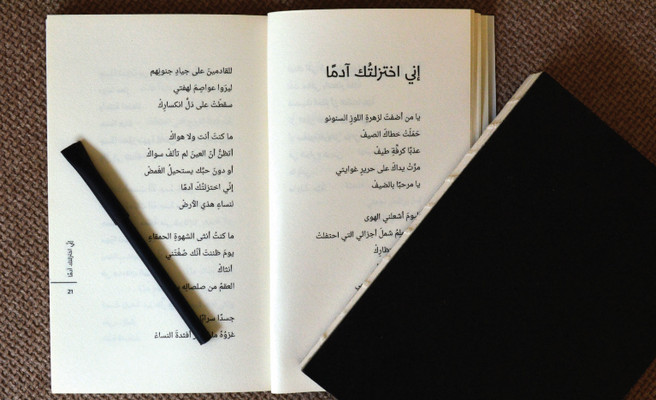 إني اختزلتُك آدمًا
يا من أضفتَ لزهرةِ اللوزِ السنونو
حَمَلَتْ خطاكَ الصيفَ
عذبًا كرقّةِ طيفْ
مرّتْ يداكَ على حريرِ غوايتي
يا مرحبًا بالضيفْ
اليومَ أشعلني الهوى
شملَ أجزائي التي احتفلتْ
للقادمينَ على جيادِ جنونِهم
ليرَوا عواصِمَ لهفتي
سقطَتْ على دَلِّ انكسارِكْ
ما كنتَ أنت ولا هواكْ
أتظنُّ أنّ العينَ لم تألفْ سواكْ
أو دونَ حبِّك يستحيلُ الغَمضْ
إنّي اختزلتُكَ آدمًا
لنساءِ هذي الأرضْ
ما كنتُ أنثى الشهوةِ الحمقاءِ
يومَ ظننتَ أنّك صُغْتَني
أنثاكْ
العقمُ من صلصالِهِ
جسدًا سرابًا
أفئدةَ النساءْ
إنّي اختزلتك آدمًا
21